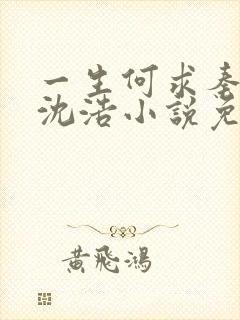 一生何求秦
沈浩小說免
黃飛鴻